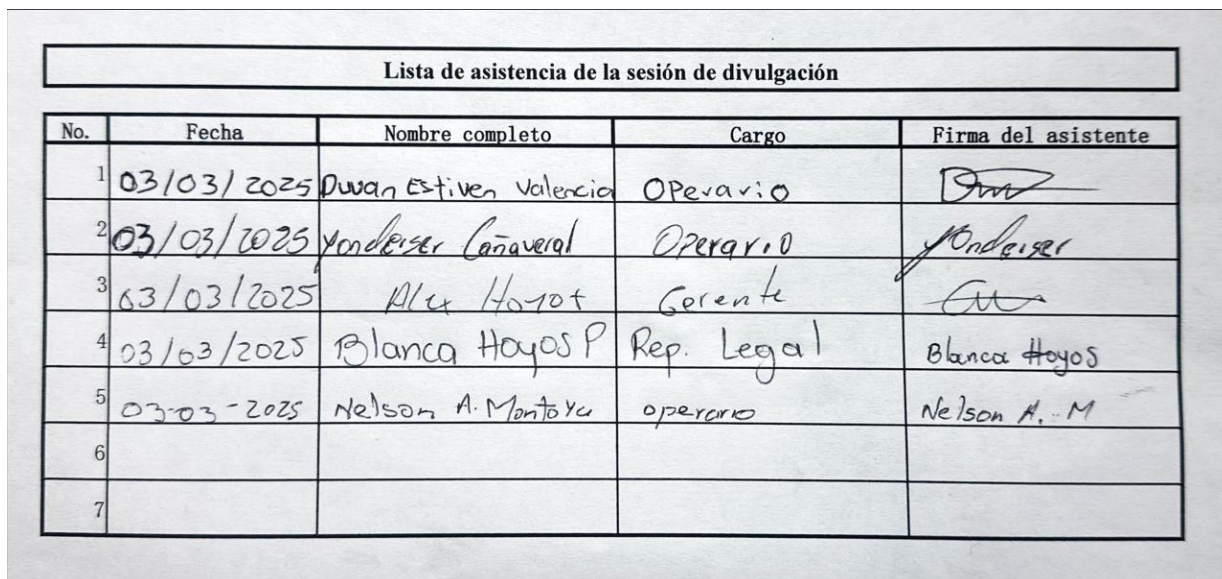 Lista de asistencia de la sesión de divulgación
No. Fecha Nombre completo Cargo Firma del asistente
1 03/03/2025 Duvan Estiven Valencia Operario
2 03/03/2025 Yondeiser Cañaveral Operario Yondeiser
3 03/03/2025 Alex Gerente
4 03/03/2025 Blanca Hoyos P Rep. Legal Blanca Hoyos
5 03-03-2025 Nelson A. Montoya operario Nelson A. M
6
7